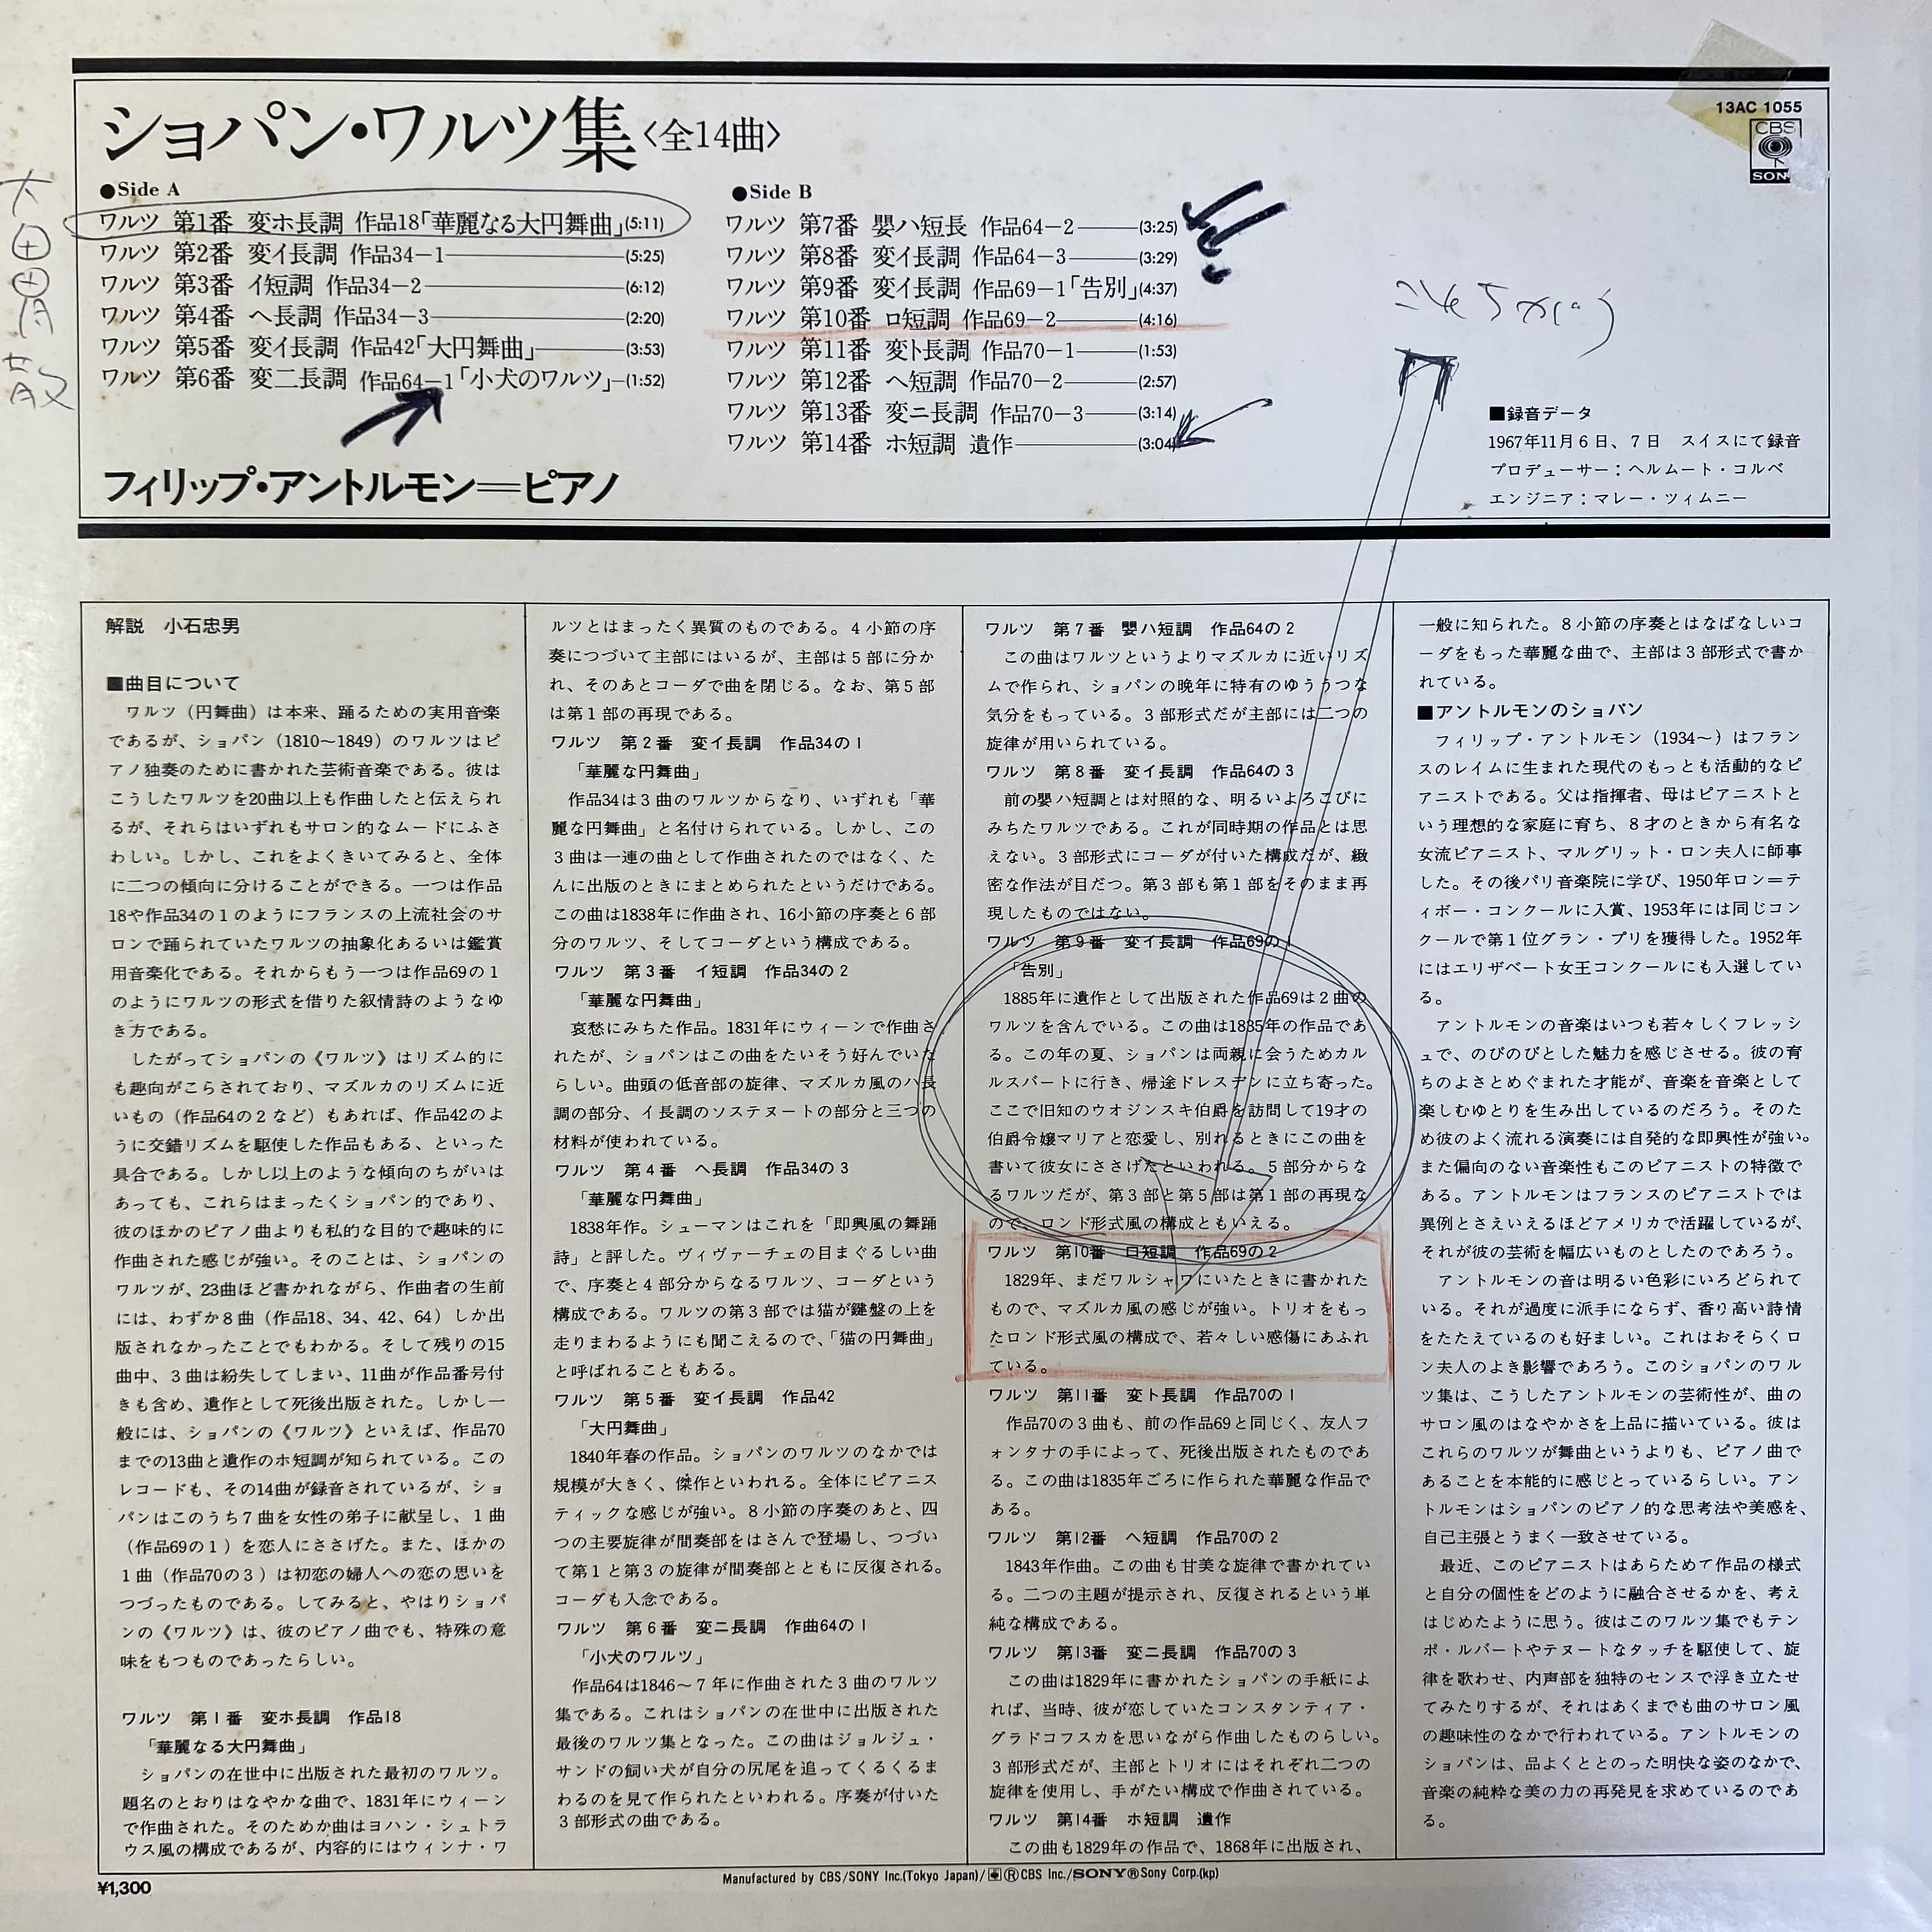 13AC 1055
CBS
SONY
ショパン・ワルツ集〈全14曲〉
●Side A
ワルツ 第1番 変ホ長調 作品18「華麗なる大円舞曲」(5:11)
ワルツ 第2番 変イ長調 作品34－1 (5:25)
ワルツ 第3番 イ短調 作品34－2 (6:12)
ワルツ 第4番 ヘ長調 作品34－3 (2:20)
ワルツ 第5番 変イ長調 作品42「大円舞曲」 (3:53)
ワルツ 第6番 変二長調 作品64－1「小犬のワルツ」 (1:52)
●Side B
ワルツ 第7番 嬰ハ短長 作品64－2 (3:25)
ワルツ 第8番 変イ長調 作品64－3 (3:29)
ワルツ 第9番 変イ長調 作品69－1「告別」(4:37)
ワルツ 第10番 ロ短調 作品69－2 (4:16)
ワルツ 第11番 変ト長調 作品70－1 (1:53)
ワルツ 第12番 ヘ短調 作品70－2 (2:57)
ワルツ 第13番 変ニ長調 作品70－3 (3:14)
ワルツ 第14番 ホ短調 遺作 (3:04)
フィリップ・アントルモン＝ピアノ
■録音データ
1967年11月6日、7日 スイスにて録音
プロデューサー：ヘルムート・コルベ
エンジニア：マレー・ツィムニー
解説 小石忠男
■曲目について
ワルツ（円舞曲）は本来、踊るための実用音楽
であるが、ショパン（1810〜1849）のワルツはピ
アノ独奏のために書かれた芸術音楽である。彼は
こうしたワルツを20曲以上も作曲したと伝えられ
るが、それらはいずれもサロン的なムードにふさ
わしい。しかし、これをよくきいてみると、全体
に二つの傾向に分けることができる。一つは作品
18や作品34の1のようにフランスの上流社会のサ
ロンで踊られていたワルツの抽象化あるいは鑑賞
用音楽化である。それからもう一つは作品69の1
のようにワルツの形式を借りた叙情詩のようなゆ
き方である。
したがってショパンの《ワルツ》はリズム的に
も趣向がこらされており、マズルカのリズムに近
いもの（作品64の2など）もあれば、作品42のよ
うに交錯リズムを駆使した作品もある、といった
具合である。しかし以上のような傾向のちがいは
あっても、これらはまったくショパン的であり、
彼のほかのピアノ曲よりも私的な目的で趣味的に
作曲された感じが強い。そのことは、ショパンの
ワルツが、23曲ほど書かれながら、作曲者の生前
には、わずか8曲（作品18、34、42、64）しか出
版されなかったことでもわかる。そして残りの15
曲中、3曲は紛失してしまい、11曲が作品番号付
きも含め、遺作として死後出版された。しかし一
般には、ショパンの《ワルツ》といえば、作品70
までの13曲と遺作のホ短調が知られている。この
レコードも、その14曲が録音されているが、ショ
パンはこのうち7曲を女性の弟子に献呈し、1曲
（作品69の1）を恋人にささげた。また、ほかの
1曲（作品70の3）は初恋の婦人への恋の思いを
つづったものである。してみると、やはりショパ
ンの《ワルツ》は、彼のピアノ曲でも、特殊の意
味をもつものであったらしい。
ワルツ 第1番 変ホ長調 作品18
「華麗なる大円舞曲」
ショパンの在世中に出版された最初のワルツ。
題名のとおりはなやかな曲で、1831年にウィーン
で作曲された。そのためか曲はヨハン・シュトラ
ウス風の構成であるが、内容的にはウィンナ・ワ
ルツとはまったく異質のものである。4小節の序
奏につづいて主部にはいるが、主部は5部に分か
れ、そのあとコーダで曲を閉じる。なお、第5部
は第1部の再現である。
ワルツ 第2番 変イ長調 作品34の1
「華麗な円舞曲」
作品34は3曲のワルツからなり、いずれも「華
麗な円舞曲」と名付けられている。しかし、この
3曲は一連の曲として作曲されたのではなく、た
んに出版のときにまとめられたというだけである。
この曲は1838年に作曲され、16小節の序奏と6部
分のワルツ、そしてコーダという構成である。
ワルツ 第3番 イ短調 作品34の2
「華麗な円舞曲」
哀愁にみちた作品。1831年にウィーンで作曲さ
れたが、ショパンはこの曲をたいそう好んでいた
らしい。曲頭の低音部の旋律、マズルカ風のハ長
調の部分、イ長調のソステヌートの部分と三つの
材料が使われている。
ワルツ 第4番 ヘ長調 作品34の3
「華麗な円舞曲」
1838年作。シューマンはこれを「即興風の舞踊
詩」と評した。ヴィヴァーチェの目まぐるしい曲
で、序奏と4部分からなるワルツ、コーダという
構成である。ワルツの第3部では猫が鍵盤の上を
走りまわるようにも聞こえるので、「猫の円舞曲」
と呼ばれることもある。
ワルツ 第5番 変イ長調 作品42
「大円舞曲」
1840年春の作品。ショパンのワルツのなかでは
規模が大きく、傑作といわれる。全体にピアニス
ティックな感じが強い。8小節の序奏のあと、四
つの主要旋律が間奏部をはさんで登場し、つづい
て第1と第3の旋律が間奏部とともに反復される。
コーダも入念である。
ワルツ 第6番 変ニ長調 作曲64の1
「小犬のワルツ」
作品64は1846〜7年に作曲された3曲のワルツ
集である。これはショパンの在世中に出版された
最後のワルツ集となった。この曲はジョルジュ・
サンドの飼い犬が自分の尻尾を追ってくるくるま
わるのを見て作られたといわれる。序奏が付いた
3部形式の曲である。
ワルツ 第7番 嬰ハ短調 作品64の2
この曲はワルツというよりマズルカに近いリズ
ムで作られ、ショパンの晩年に特有のゆううつな
気分をもっている。3部形式だが主部には二つの
旋律が用いられている。
ワルツ 第8番 変イ長調 作品64の3
前の嬰ハ短調とは対照的な、明るいよろこびに
みちたワルツである。これが同時期の作品とは思
えない。3部形式にコーダが付いた構成だが、緻
密な作法が目だつ。第3部も第1部をそのまま再
現したものではない。
ワルツ 第9番 変イ長調 作品69の1
「告別」
1885年に遺作として出版された作品69は2曲の
ワルツを含んでいる。この曲は1835年の作品であ
る。この年の夏、ショパンは両親に会うためカル
ルスバートに行き、帰途ドレスデンに立ち寄った。
ここで旧知のウオジンスキ伯爵を訪問して19才の
伯爵令嬢マリアと恋愛し、別れるときにこの曲を
書いて彼女にささげたといわれる。5部分からな
るワルツだが、第3部と第5部は第1部の再現な
ので、ロンド形式風の構成ともいえる。
ワルツ 第10番 ロ短調 作品69の2
1829年、まだワルシャワにいたときに書かれた
もので、マズルカ風の感じが強い。トリオをもっ
たロンド形式風の構成で、若々しい感傷にあふれ
ている。
ワルツ 第11番 変ト長調 作品70の1
作品70の3曲も、前の作品69と同じく、友人フ
ォンタナの手によって、死後出版されたものであ
る。この曲は1835年ごろに作られた華麗な作品で
ある。
ワルツ 第12番 ヘ短調 作品70の2
1843年作曲。この曲も甘美な旋律で書かれてい
る。二つの主題が提示され、反復されるという単
純な構成である。
ワルツ 第13番 変ニ長調 作品70の3
この曲は1829年に書かれたショパンの手紙によ
れば、当時、彼が恋していたコンスタンティア・
グラドコフスカを思いながら作曲したものらしい。
3部形式だが、主部とトリオにはそれぞれ二つの
旋律を使用し、手がたい構成で作曲されている。
ワルツ 第14番 ホ短調 遺作
この曲も1829年の作品で、1868年に出版され、
一般に知られた。8小節の序奏とはなばなしいコ
ーダをもった華麗な曲で、主部は3部形式で書か
れている。
■アントルモンのショパン
フィリップ・アントルモン（1934〜）はフラン
スのレイムに生まれた現代のもっとも活動的なピ
アニストである。父は指揮者、母はピアニストと
いう理想的な家庭に育ち、8才のときから有名な
女流ピアニスト、マルグリット・ロン夫人に師事
した。その後パリ音楽院に学び、1950年ロン＝テ
ィボー・コンクールに入賞、1953年には同じコン
クールで第1位グラン・プリを獲得した。1952年
にはエリザベート女王コンクールにも入選してい
る。
アントルモンの音楽はいつも若々しくフレッシ
ュで、のびのびとした魅力を感じさせる。彼の育
ちのよさとめぐまれた才能が、音楽を音楽として
楽しむゆとりを生み出しているのだろう。そのた
め彼のよく流れる演奏には自発的な即興性が強い。
また偏向のない音楽性もこのピアニストの特徴で
ある。アントルモンはフランスのピアニストでは
異例とさえいえるほどアメリカで活躍しているが、
それが彼の芸術を幅広いものとしたのであろう。
アントルモンの音は明るい色彩にいろどられて
いる。それが過度に派手にならず、香り高い詩情
をたたえているのも好ましい。これはおそらくロ
ン夫人のよき影響であろう。このショパンのワル
ツ集は、こうしたアントルモンの芸術性が、曲の
サロン風のはなやかさを上品に描いている。彼は
これらのワルツが舞曲というよりも、ピアノ曲で
あることを本能的に感じとっているらしい。アン
トルモンはショパンのピアノ的な思考法や美感を、
自己主張とうまく一致させている。
最近、このピアニストはあらためて作品の様式
と自分の個性をどのように融合させるかを、考え
はじめたように思う。彼はこのワルツ集でもテン
ポ・ルバートやテヌートなタッチを駆使して、旋
律を歌わせ、内声部を独特のセンスで浮き立たせ
てみたりするが、それはあくまでも曲のサロン風
の趣味性のなかで行われている。アントルモンの
ショパンは、品よくととのった明快な姿のなかで、
音楽の純粋な美の力の再発見を求めているのであ
る。
¥1,300
Manufactured by CBS/SONY Inc.(Tokyo Japan)/ ⓇCBS Inc./SONY®Sony Corp.(kp)